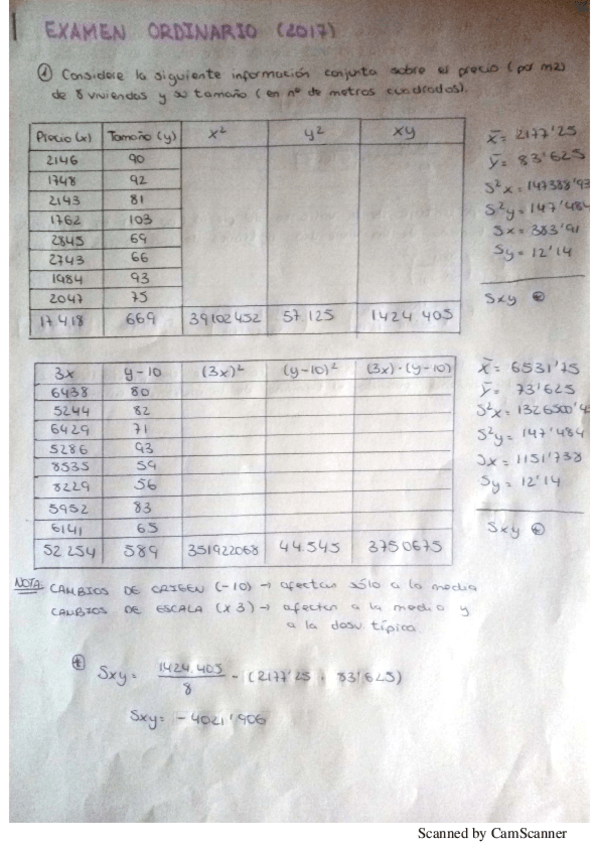 EXAMEN ORDINARIO (2017)
① Considere la siguiente información conjunta sobre el precio (por m2)
de 8 viviendas y su tamaño (en nº de metros cuadrados).
Precio (x) Tamaño (y) x² y² xy
2146 90
1748 92
2143 81
1762 103
2845 69
2743 66
1984 93
2047 75
17.418 669 39102452 57.125 1424.405
x̄ = 2177'25
ȳ = 83'625
S²x = 147388'93
S²y = 147'484
Sx = 383'91
Sy = 12'14
Sxy
3x y-10 (3x)² (y-10)² (3x)·(y-10)
6438 80
5244 82
6429 71
5286 93
8535 59
8229 56
5952 83
6141 65
52.254 589 351922068 44.545 3750675
x̄ = 6531'75
ȳ = 73'625
S²x = 1326500'4
S²y = 147'484
Sx = 1151'738
Sy = 12'14
Sxy
NOTA: CAMBIOS DE ORIGEN (-10) → afectan sólo a la media
CAMBIOS DE ESCALA (x 3) → afectan a la media y
a la desv típica.
Sxy = 1424.405 / 8 - (2177'25 · 83'625)
Sxy = -4021'906
Scanned by CamScanner